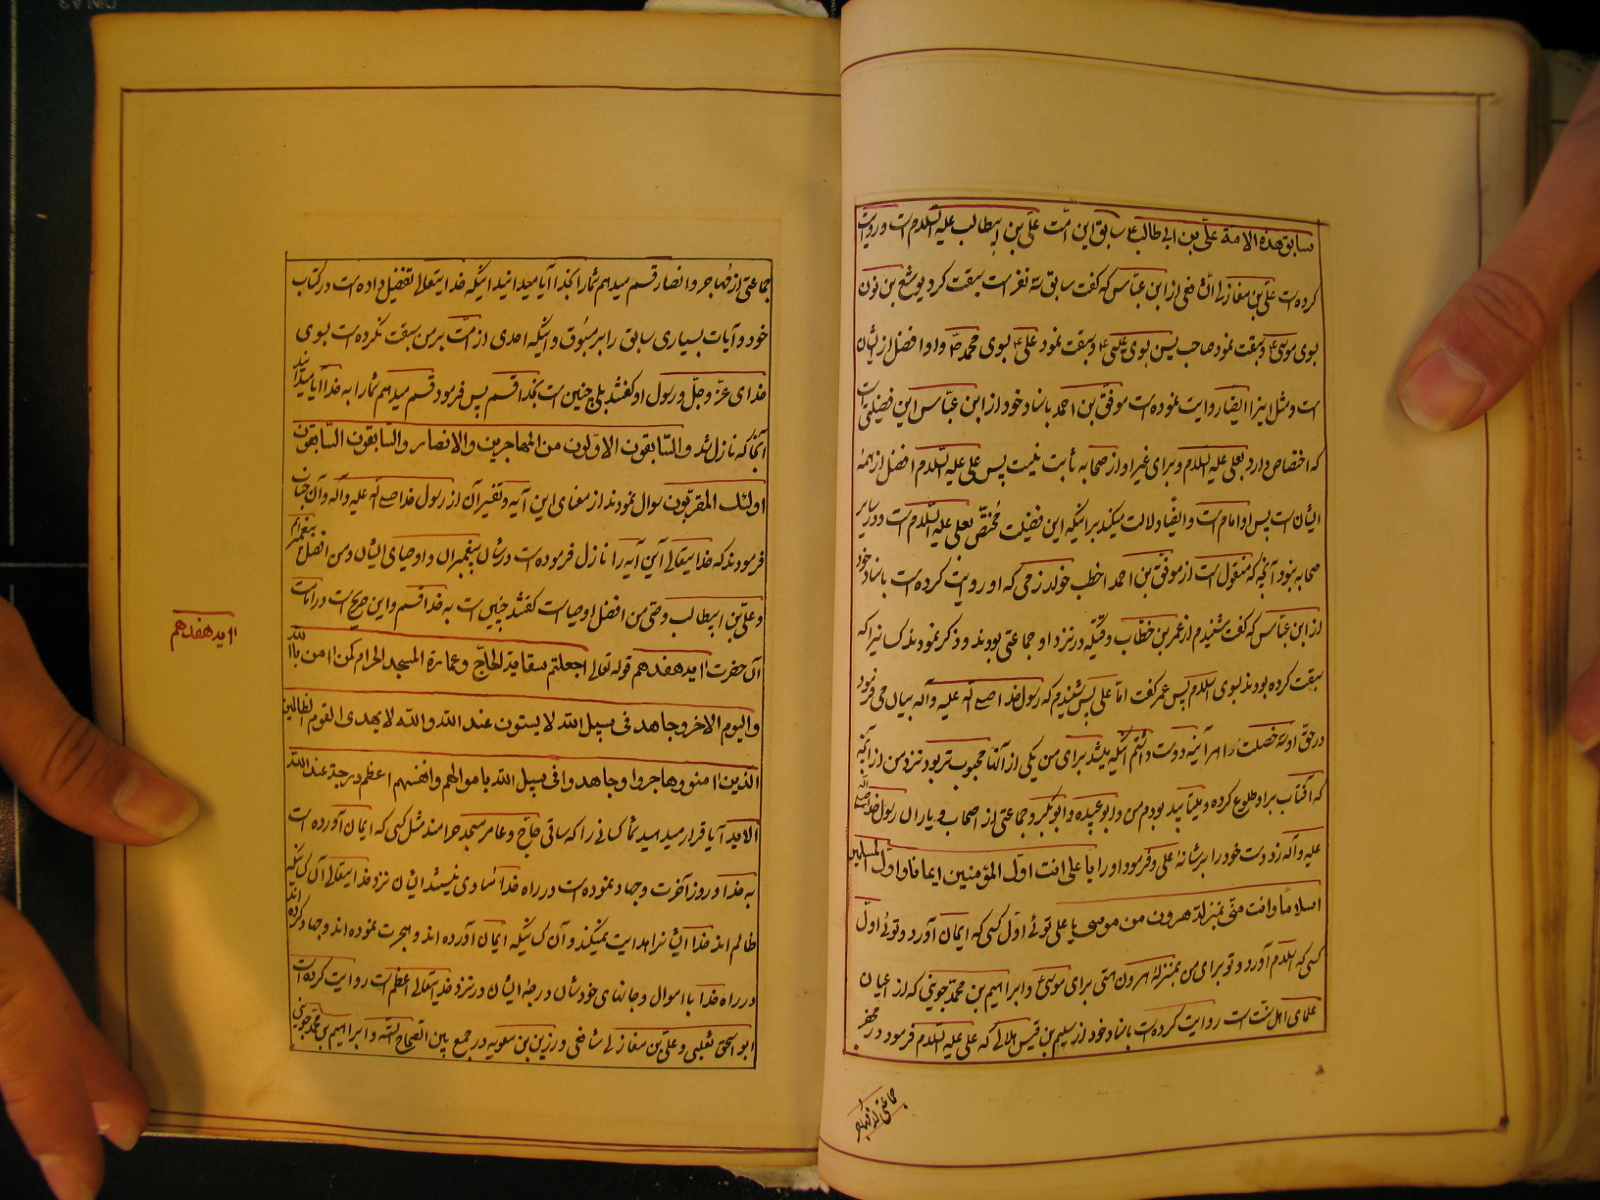 سابق هذه الامة علی بن ابی طالب ع سابق این امت علی بن ابیطالب علیه السلام است و روایت
کرده است علی بن مغازلی الشافعی از ابن عباس که گفت سابق سه نفر است سبقت کرد یوشع بن نون
بسوی موسی ع و سبقت نمود صاحب یسن بسوی عیسی ع و سبقت نمود علی ع بسوی محمد ص و او افضل از ایشان
است و مثل اینرا ایضا روایت نموده است موفق بن احمد باسناد خود از ابن عباس این فضیلتی است
که اختصاص دارد بعلی علیه السلام و برای غیر او از صحابه ثابت نیست پس علی علیه السلام افضل از همهٔ
ایشان است پس او امام است و ایضا دلالت میکند بر اینکه این فضیلت مختص بعلی علیه السلام است و در سایر
صحابه نبود آنچه که منقول است از موفق بن احمد اخطب خوارزمی که او روایت کرده است باسناد خود
از ابن عباس که گفت شنیدم از عمر بن خطاب وقتیکه در نزد او جماعتی بودند و ذکر نمودند کسانیرا که
سبقت کرده بودند بسوی اسلام پس عمر گفت اما علی پس شنیدم که رسول خدا صلی الله علیه و آله بیان می فرمود
در حق او سه خصلت را هر آینه دوست داشتم اینکه باشد برای من یکی از آنها محبوب تر بود نزد من از آنچه
که افتاب بر او طلوع کرده و بتابد بودم من و ابو عبیده و ابوبکر و جماعتی از اصحاب و یاران رسول خدا صلی الله
علیه و آله زد دست خود را بر شانهٔ علی و فرمود او را یا علی انت اول المؤمنین ایمانا و اول المسلمین
اسلاما و انت منی بمنزلة هرون من موسی یا علی توئی اول کسی که ایمان آورد و توئی اول
کسی که اسلام آورد و تو برای من بمنزلهٔ هرون هستی برای موسی ع و ابراهیم بن محمد جوینی که از اعیان
علمای اهل سنت است روایت کرده است باسناد خود از سلیم بن قیس هلالی که علی علیه السلام فرمود در محضر
جماعتی از مهاجر
جماعتی از مهاجر و انصار قسم میدهم شما را بخدا آیا میدانید اینکه خدایتعالی تفضیل داده است در کتاب
خود و آیات بسیاری سابق را بر مسبوق و اینکه احدی از امت بر من سبقت نکرده است بسوی
خدای عز و جل و رسول او گفتند بلی چنین است بخدا قسم پس فرمود قسم میدهم شما را به خدا آیا میدانید
آنجا که نازل شد والسابقون الاولون من المهاجرین والانصار والسابقون السابقون
اولئک المقربون سوال نمودند از معنای این آیه و تفسیر آن از رسول خدا صلی الله علیه و آله و آن جناب
فرمودند که خدایتعالی آین آیه را نازل فرموده است در شان پیغمبران و اوصیای ایشان و من افضل پیغمبرانم
و علی بن ابیطالب وصی من افضل اوصیا است گفتند چنین است به خدا قسم و این صریح است در امامت
آن حضرت آیه هفدهم قوله تعالی اجعلتم سقایة الحاج و عمارة المسجد الحرام کمن امن بالله
و الیوم الاخر و جاهد فی سبیل الله لا یستون عند الله و الله لا یهدی القوم الظالمین
الذین امنو و هاجروا و جاهدوا فی سبیل الله باموالهم و انفسهم اعظم درجة عند الله
الایه آیا قرار میدهید شما کسانی را که ساقی حاج و عامر مسجد حرامند مثل کسی که ایمان آورده است
به خدا و روز آخرت و جهاد نموده است در راه خدا مساوی نیستند ایشان نزد خدایتعالی آن کسانیکه
ظالم اند خدا ایشانرا هدایت نمیکند و آن کسانیکه ایمان آورده اند و هجرت نموده اند و جهاد کرده اند
در راه خدا با اموال و جانهای خودشان درجهٔ ایشان در نزد خدایتعالی اعظم است روایت کرده است
ابو اسحق ثعلبی و علی بن مغازلی شافعی و رزین بن معویه در جمع بین الصحاح السته و ابراهیم بن محمد جوینی
آیه هفدهم